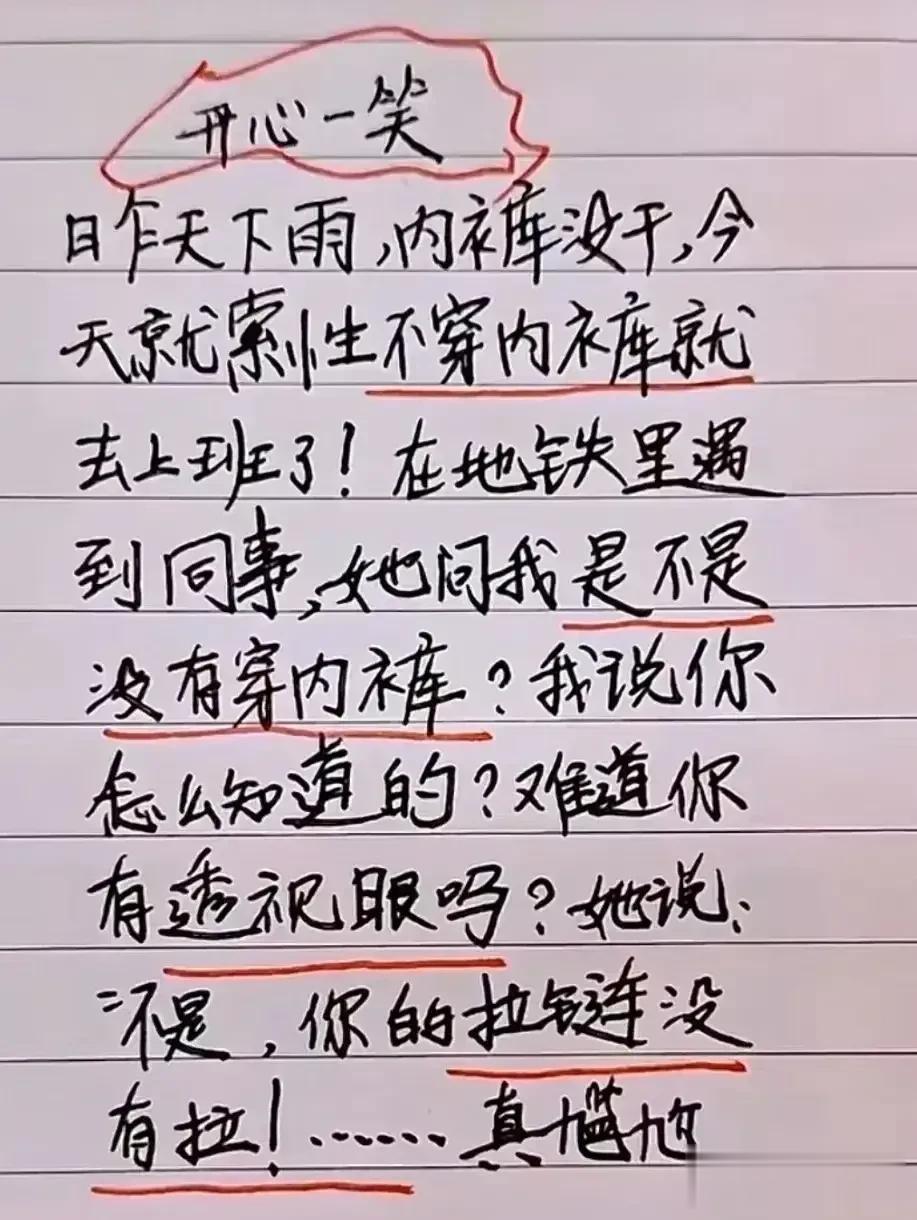 开心一笑
昨天下雨,内裤没干,今
天就索性不穿内裤就
去上班了!在地铁里遇
到同事,她问我是不是
没有穿内裤?我说你
怎么知道的?难道你
有透视眼吗?她说:
不是,你的拉链没
有拉!......真尴尬